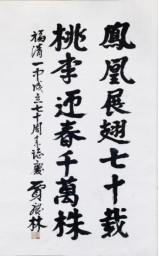 鳳凰展翅七十載
桃李迎春千萬株
福清一中成立七十周年誌慶
賈慶林